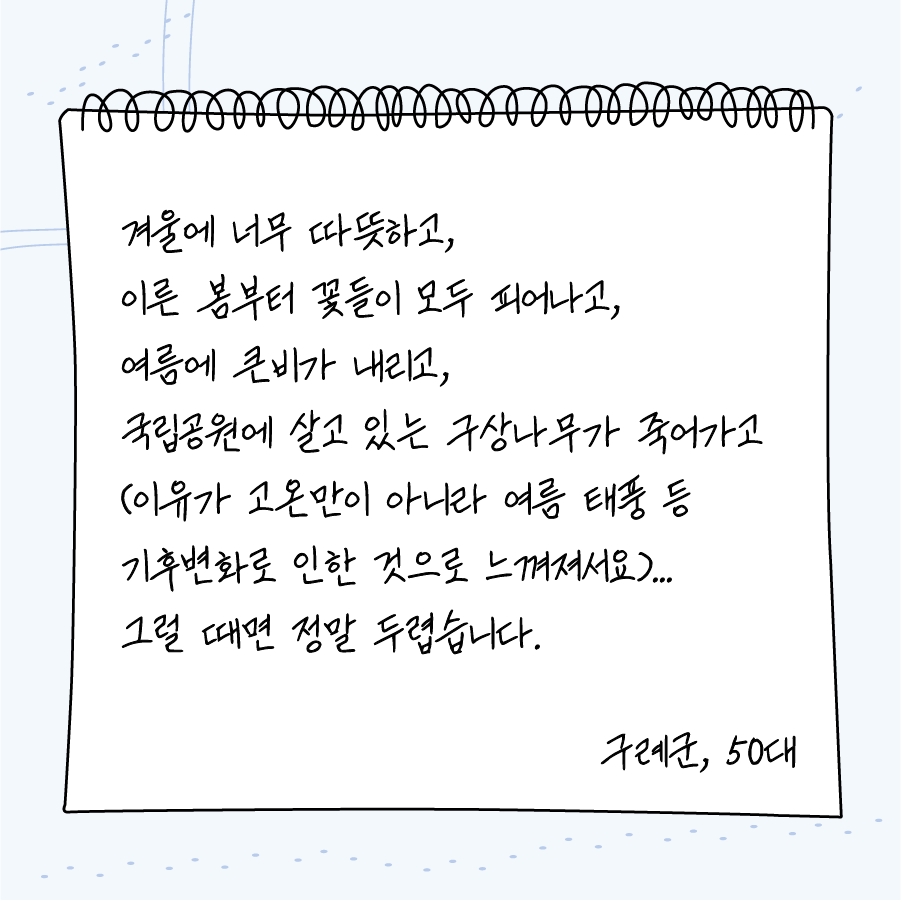 겨울에 너무 따뜻하고,
이른 봄부터 꽃들이 모두 피어나고,
여름에 큰비가 내리고,
국립공원에 살고 있는 구상나무가 죽어가고
(이유가 고온만이 아니라 여름 태풍 등
기후변화로 인한 것으로 느껴져서요)...
그럴 때면 정말 두렵습니다.
구례군, 50대